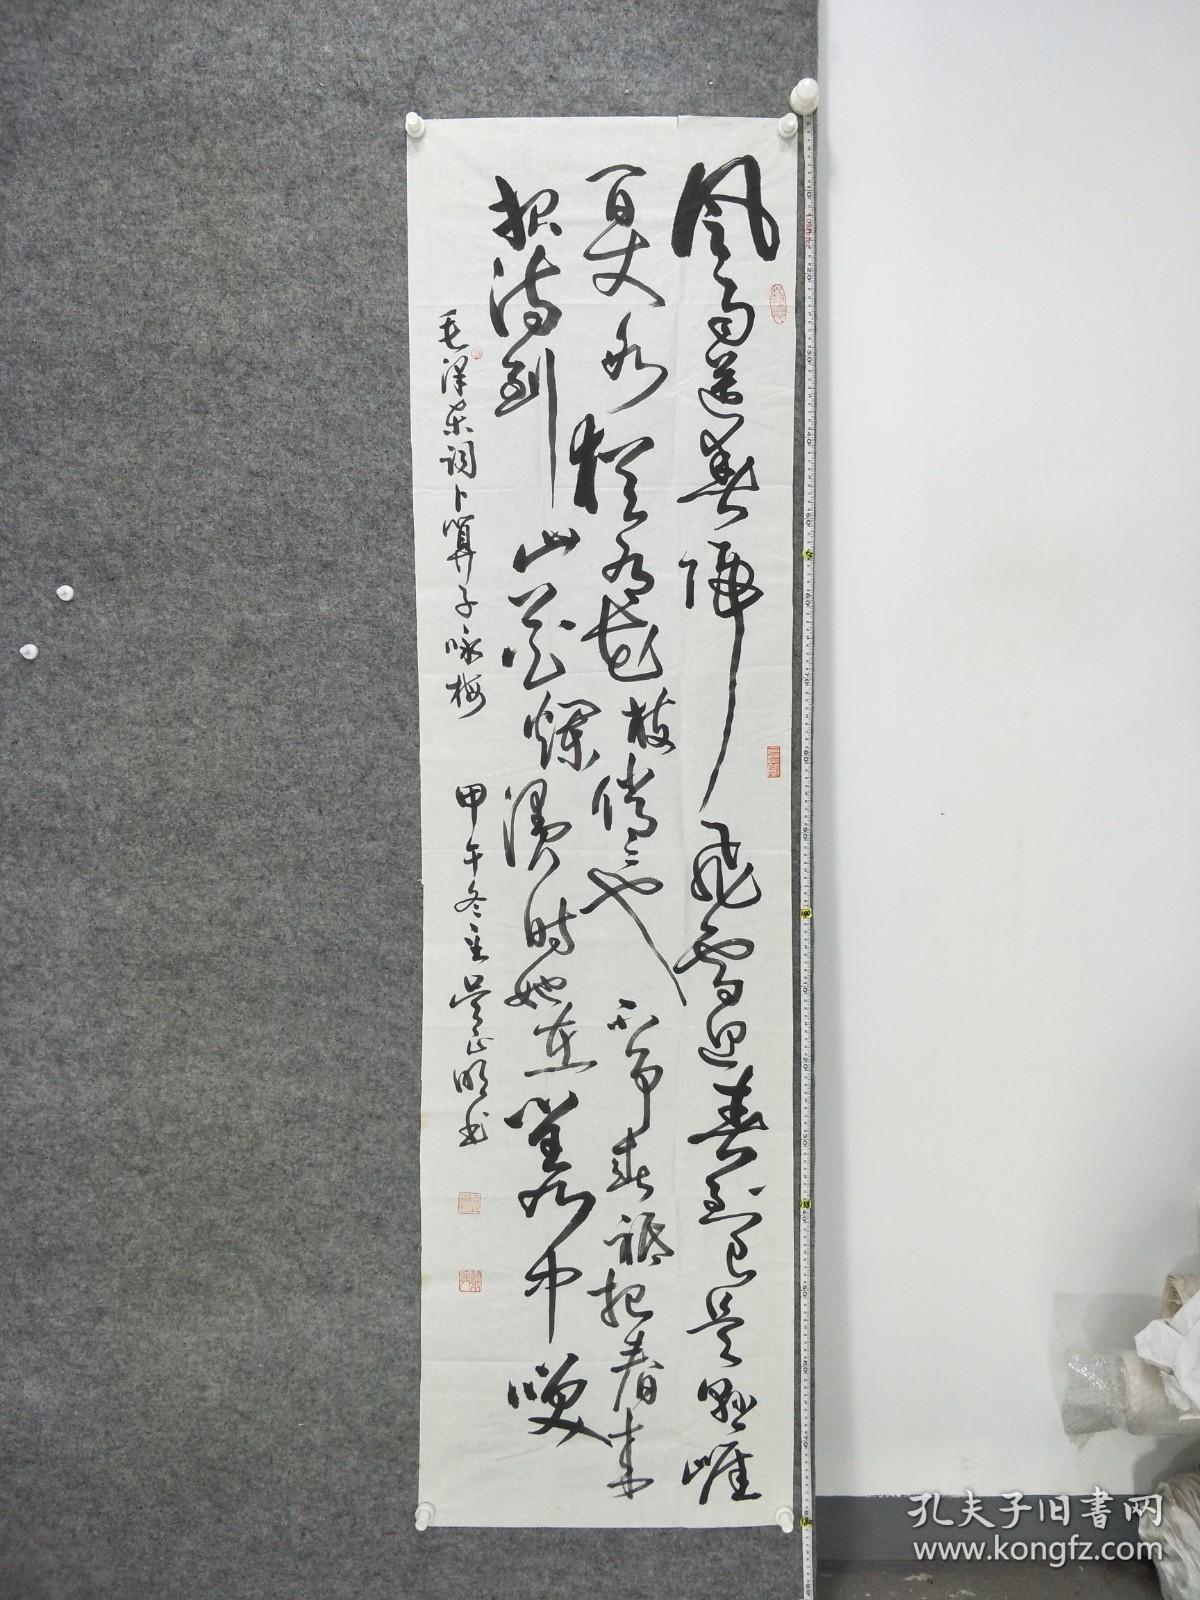 風雨送春归飛雪迎春到已是懸崖
百丈冰犹有花枝俏俏也不争春祗把春来
报待到山花爛漫时她在叢中咲
毛泽东词卜算子咏梅 甲午冬至吴正明书
孔夫子旧書网
www.kongfz.com